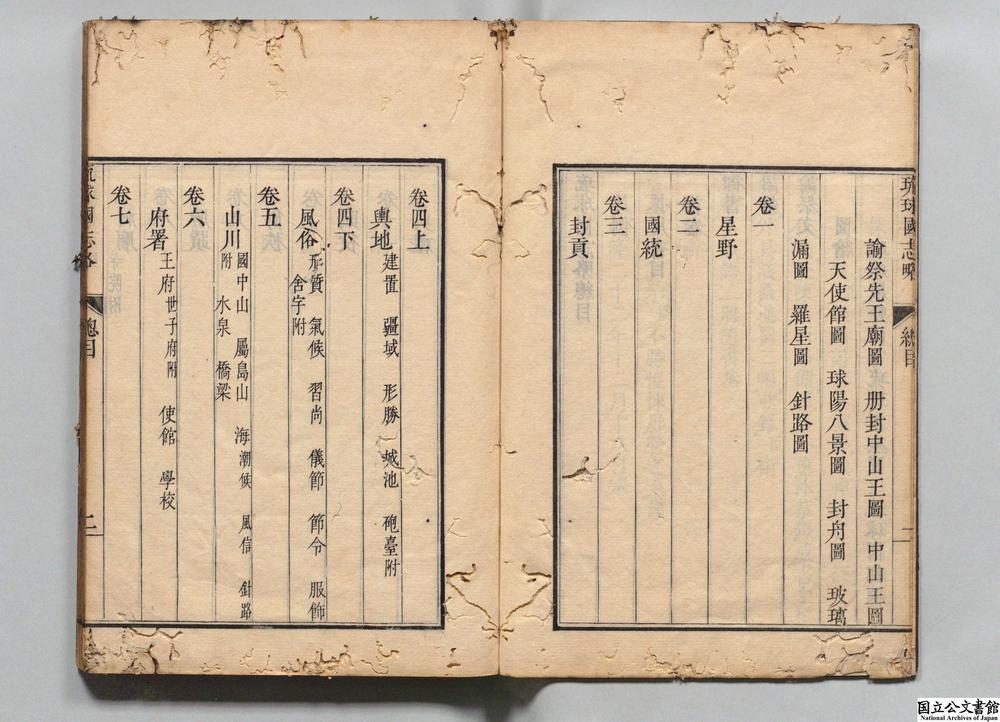 琉球國志略 總目 一
諭祭先王廟圖 册封中山王圖 中山王圖
天使館圖 球陽八景圖 封舟圖 玻璃
漏圖 羅星圖 針路圖
卷一
星野
卷二
國統
卷三
封貢
卷四上
輿地 建置 疆域 形勝 城池 砲臺附
卷四下
風俗 形質 氣候 習尚 儀節 節令 服飾
舍宇附
卷五
山川 國中山 屬島山 海 潮候 風信 針路
附 水泉 橋梁
卷六
府署 王府 世子府附 使館 學校
卷七
琉球國志略 總目 二
国立公文書館
National Archives of Japan